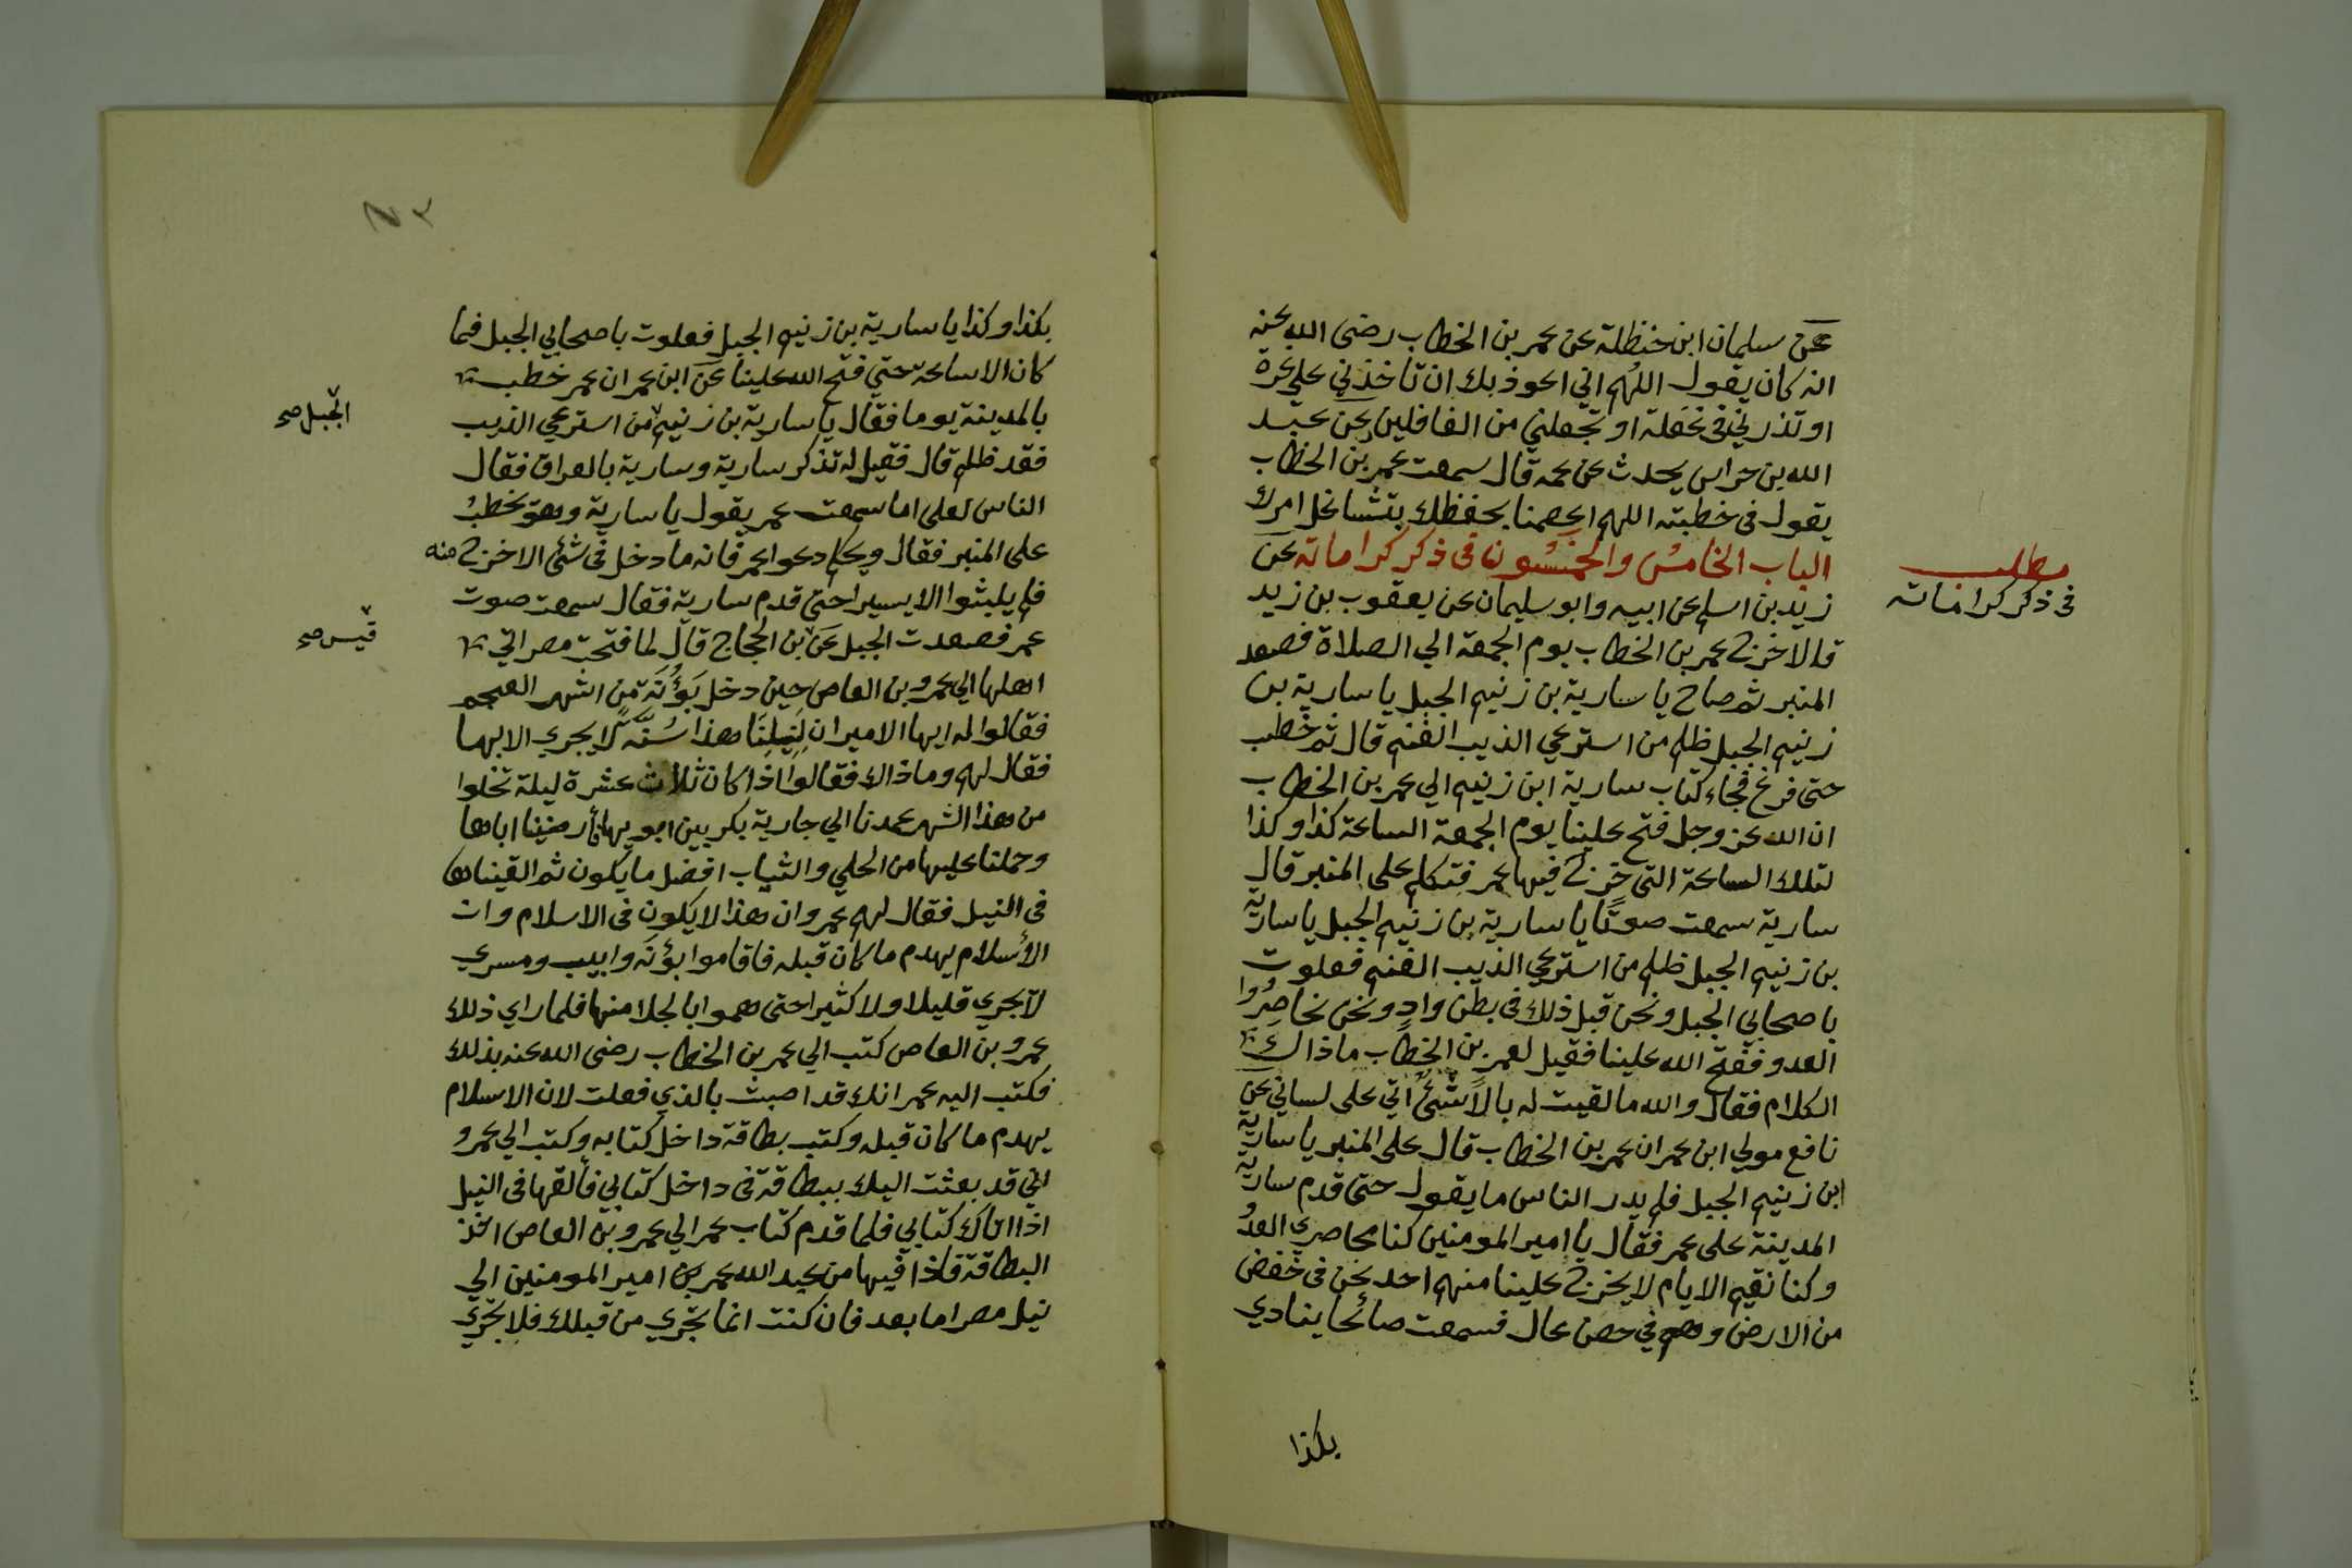 عن سليمان ابن حنظلة عن عمر بن الخطاب رضى الله عنه
انه كان يقول اللهم اني اعوذ بك ان تاخذني على غرة
او تذرني فى غفلة او تجعلني من الغافلين عن عبد
الله بن خراس يحدث عن عمه قال سمعت عمر بن الخطاب
يقول فى خطبته اللهم اعصمنا بحفظك
الباب الخامس والخمسون فى ذكر كراماته عن
مطلب
فى ذكر كراماته
زيد بن اسلم عن ابيه وابو سليمان عن يعقوب بن زيد
قالا خرج عمر بن الخطاب يوم الجمعة الي الصلاة فصعد
المنبر ثم صاح يا سارية بن زنيم الجبل يا سارية بن
زنيم الجبل ظلم من استرعي الذيب الغنم قال ثم خطب
حتى فرغ فجاء كتاب سارية ابن زنيم الي عمر بن الخطاب
ان الله عز وجل فتح علينا يوم الجمعة الساعة كذا وكذا
لتلك الساعة التى خرج فيها عمر فتكلم على المنبر قال
سارية سمعت صوتا يا سارية بن زنيم الجبل يا سارية
بن زنيم الجبل ظلم من استرعي الذيب الغنم فعلوت
باصحابي الجبل ونحن قبل ذلك فى بطن واد ونحن نحاصروا
العدو ففتح الله علينا فقيل لعمر بن الخطاب ما ذاك
الكلام فقال والله ما لقيت له بالا شئ اتي على لساني عن
نافع مولي ابن عمر ان عمر بن الخطاب قال على المنبر يا سارية
ابن زنيم الجبل فلم يدر الناس ما يقول حتى قدم سارية
المدينة على عمر فقال يا امير المومنين كنا محاصري العدو
وكنا نقيم الايام لا يخرج علينا منهم احد نحن فى خفض
من الارض وهم في حصن عال فسمعت صائحا ينادي
بكذا
بكذا وكذا يا سارية بن زنيم الجبل فعلوت باصحابي الجبل فما
كان الا ساعة حتي فتح الله علينا عن ابن عمر ان عمر خطب
بالمدينة يوما فقال يا سارية بن زنيم من استرعي الذيب
الجبل صح
فقد ظلم قال فقيل له تذكر سارية وسارية بالعراق فقال
الناس لعلي اما سمعت عمر يقول يا سارية وهو يخطب
على المنبر فقال ويحكم دعوا عمر فانه ما دخل فى شئ الا خرج منه
فلم يلبثوا الا يسيرا حتى قدم سارية فقال سمعت صوت
عمر فصعدت الجبل عن بن الحجاج قال لما فتحت مصر اتي
قيس صح
اهلها الي عمرو بن العاص حين دخل بؤنة من اشهر العجم
فقالوا له ايها الامير ان لنيلنا هذا سنة لا يجري الا بها
فقال لهم وما ذاك فقالوا اذا كان ثلاث عشرة ليلة تخلوا
من هذا الشهر عمدنا الي جارية بكر بين ابويها فأرضينا اباها
وحملنا عليها من الحلي والثياب افضل ما يكون ثم القيناها
فى النيل فقال لهم عمرو ان هذا لا يكون فى الاسلام وان
الأسلام يهدم ما كان قبله فاقاموا بؤنه وابيب ومسري
لا يجري قليلا ولا كثيرا حتى هموا بالجلا منها فلما راي ذلك
عمرو بن العاص كتب الي عمر بن الخطاب رضى الله عنه بذلك
فكتب اليه عمر انك قد اصبت بالذي فعلت لان الاسلام
يهدم ما كان قبله وكتب بطاقة داخل كتابه وكتب الي عمرو
اني قد بعثت اليك ببطاقة فى داخل كتابي فألقها فى النيل
اذا اتاك كتابي فلما قدم كتاب عمر الي عمرو بن العاص اخذ
البطاقة فاذا فيها من عبد الله عمر بن امير المومنين الي
نيل مصر اما بعد فان كنت انما تجري من قبلك فلا تجري